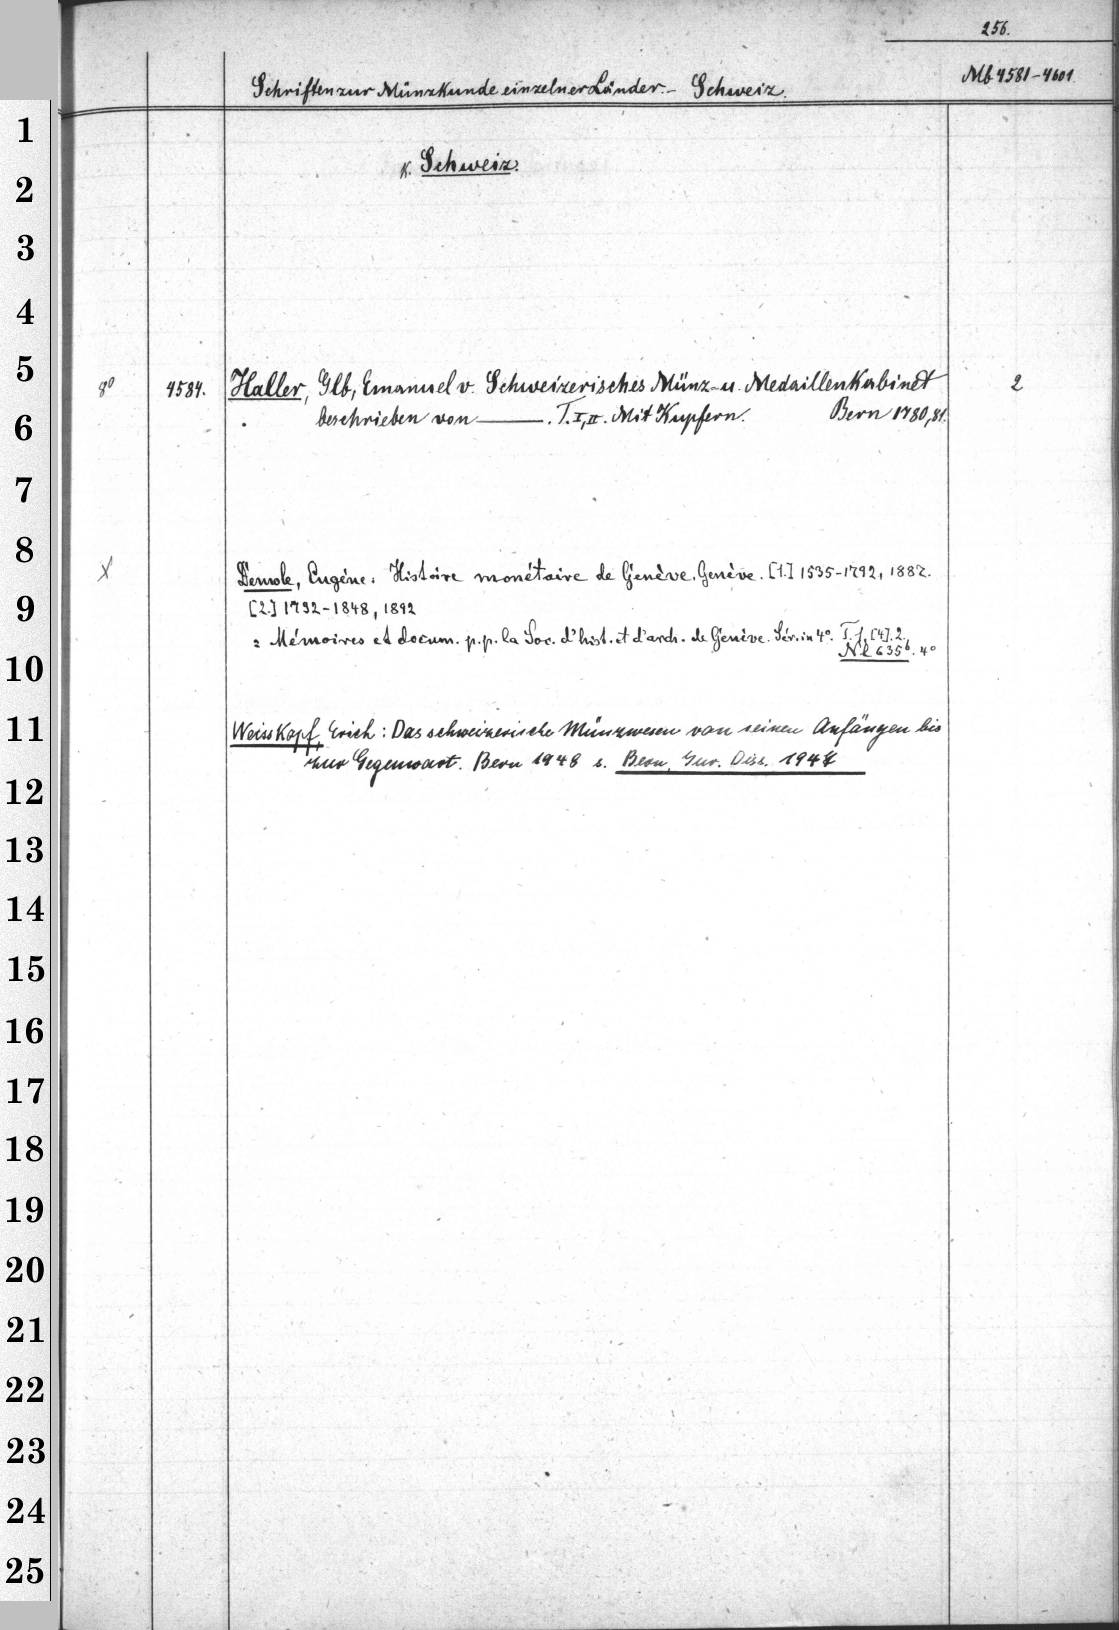 256.
Mb 4581-4601
Schriften zur Münzkunde einzelner Länder. - Schweiz.
K. Schweiz.
8° 4584. Haller, Glb, Emanuel v. Schweizerisches Münz- u. Medaillenkabinet 2
beschrieben von ——. T. I, II. Mit Kupfern. Bern 1780, 81.
X Demole, Eugène: Histoire monétaire de Genève. Genève. [1.] 1535-1792, 1887.
[2.] 1792-1848, 1892
= Mémoires et docum. p. p. la Soc. d'hist. et d'arch. de Genève. Sér. in 4°. T. 1, [4]. 2.
Nl 635b. 4°
Weisskopf, Erich: Das schweizerische Münzwesen von seinen Anfängen bis
zur Gegenwart. Bern 1948 s. Bern, Jur. Diss. 1948
1
2
3
4
5
6
7
8
9
10
11
12
13
14
15
16
17
18
19
20
21
22
23
24
25